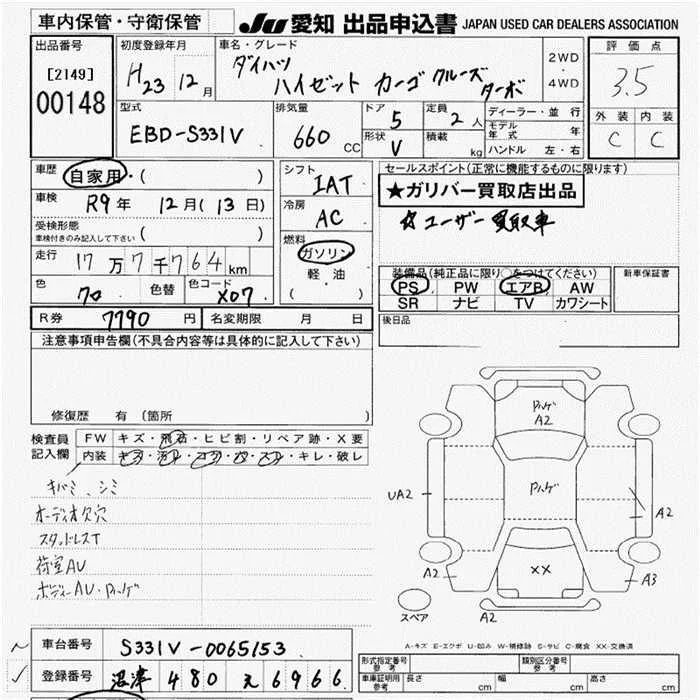 車内保管・守衛保管
JU 愛知 出品申込書 JAPAN USED CAR DEALERS ASSOCIATION
出品番号
[2149]
00148
初度登録年月
H23 12月
車名・グレード
ダイハツ
ハイゼット カーゴ クルーズターボ
2WD
・
4WD
評価点
3.5
外装 内装
C C
型式
EBD-S331V
排気量
660 CC
ドア 5
形状 V
定員 2人
積載 kg
ディーラー・並行
モデル年式 年
ハンドル 左・右
車歴 自家用・( )
車検 R9年 12月(13日)
受検形態
車検付きのみ記入して下さい ( )
走行 17万7千764km
色 色替 色コード X07
シフト
IAT
冷房
AC
燃料
ガソリン
軽油
( )
セールスポイント(正常に機能するものに限ります)
★ガリバー買取店出品
☆ユーザー買取車
装備品(純正品に限り○をつけてください)
PS PW エアB AW
SR ナビ TV カワシート
新車保証書
後日品
R券 7790円 名変期限 月 日
注意事項申告欄(不具合内容等は具体的に記入して下さい)
修復歴 有 (箇所
検査員記入欄
FW キズ・飛石・ヒビ割・リペア跡・X要
内装 キズ・汚れ・コゲ・穴・スレ・キレ・破レ
キバミ、シミ
オーディオ欠穴
スタッドレスT
荷室AU
ボディーAU・Pハゲ
Pハゲ
A2
Pハゲ
UA2
A2
XX
A2
A3
A2
スペア
A-キズ E-エクボ U-凹み W-補修跡 S-サビ C-腐食 XX-交換済
車台番号 S331V-0065153
登録番号 沼津 480 え 6966
形式指定番号 参考
類別区分番号 参考
車庫証明用 参考 長さ cm 幅 cm 高さ cm